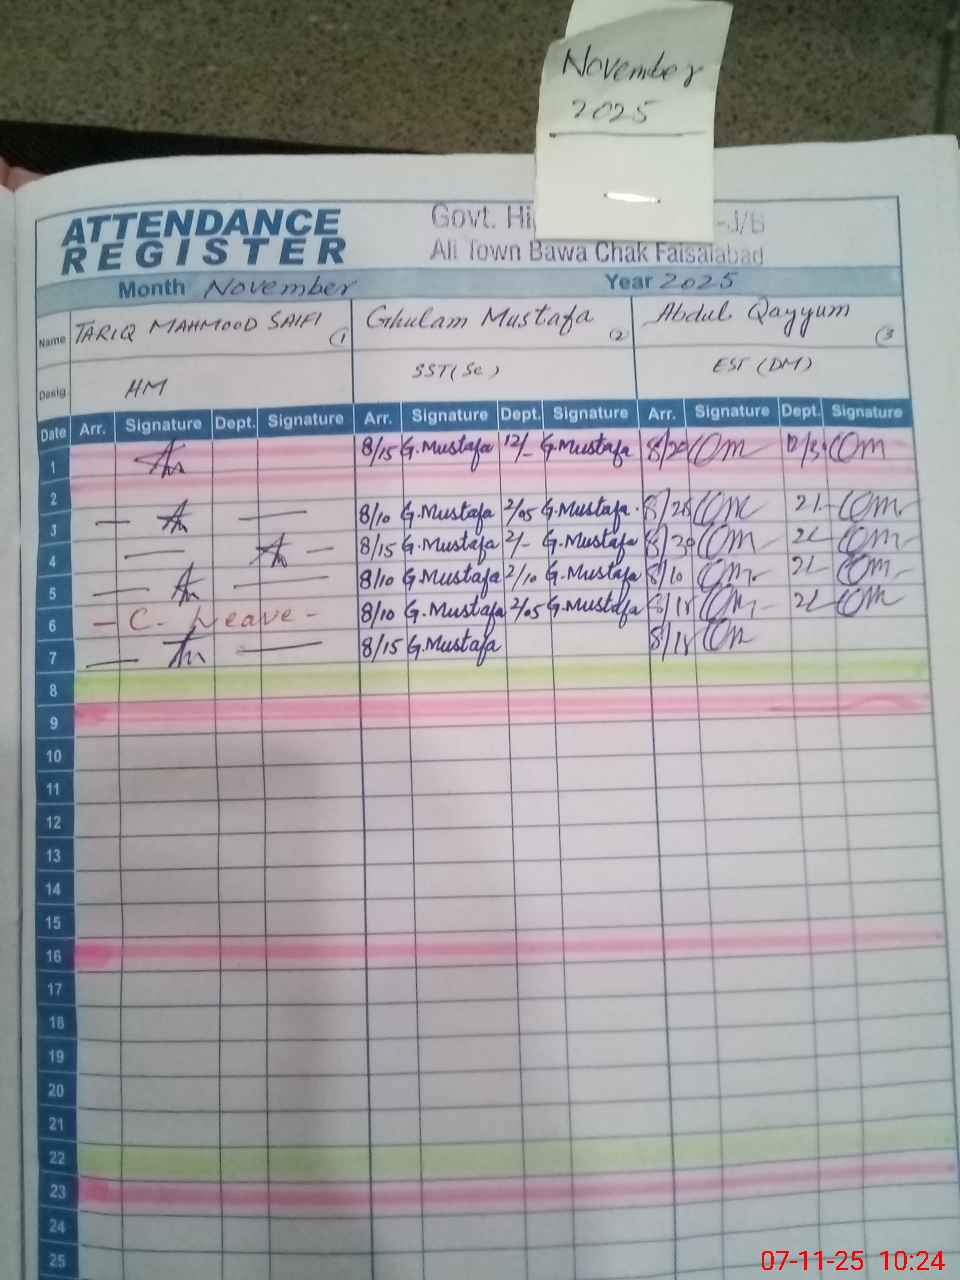 November
2025
ATTENDANCE
REGISTER
Govt. Hi -J/B
Ali Town Bawa Chak Faisalabad
Month November Year 2025
Name TARIQ MAHMOOD SAIFI (1 Ghulam Mustafa (2 Abdul Qayyum (3
Desig HM SST (Sc) EST (DM)
Date Arr. Signature Dept. Signature Arr. Signature Dept. Signature Arr. Signature Dept. Signature
1 8/15 G.Mustafa 12/- G.Mustafa 8/20
2
3 8/10 G.Mustafa 2/05 G.Mustafa.
4 8/15 G.Mustafa 2/- G.Mustafa 8/30
5 8/10 G.Mustafa 2/10 G.Mustafa 8/10
6 - C. Leave - 8/10 G.Mustafa 2/05 G.Mustafa
7 8/15 G.Mustafa
8
9
10
11
12
13
14
15
16
17
18
19
20
21
22
23
24
25
07-11-25 10:24